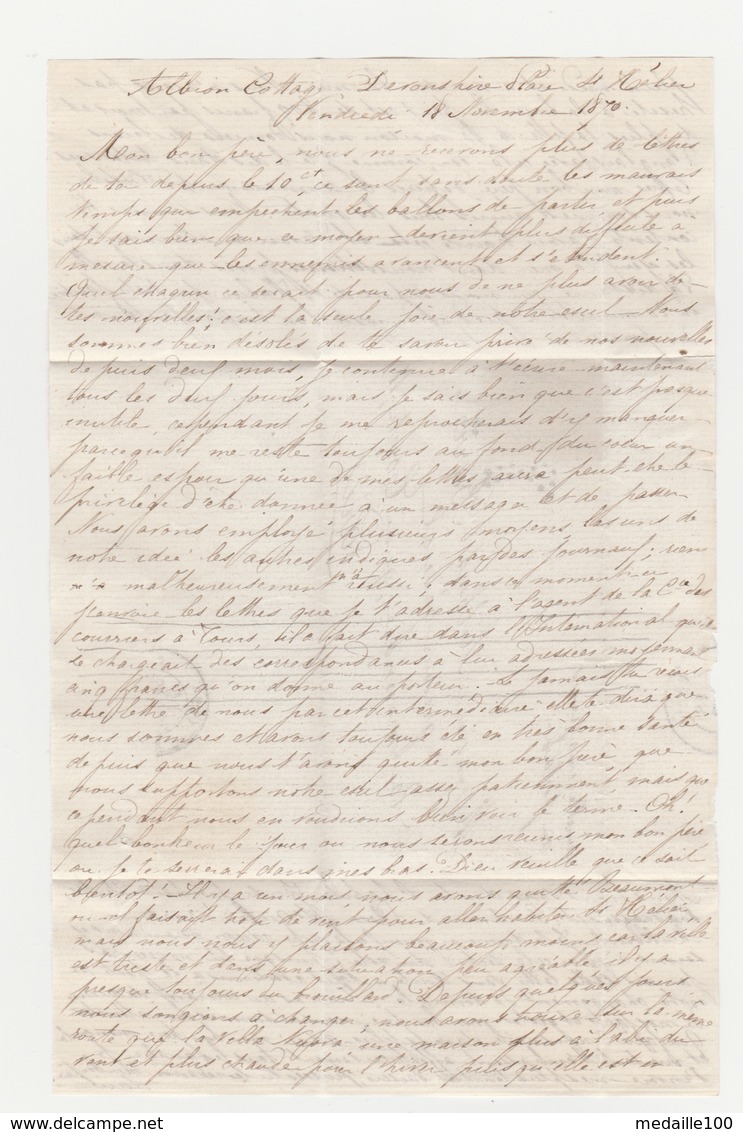 Albion Cottage Devonshire Place St Hélier
Vendredi 18 Novembre 1870.
Mon bon père, nous ne recevons plus de lettres
de toi depuis le 10 ct, ce sont sans doute les mauvais
temps qui empechent les ballons de partir et puis
je sais bien que ce moyen devient plus difficile à
mesure que les ennemis avancent et s'etendent.
Quel chagrin ce serait pour nous de ne plus avoir de
tes nouvelles! c'est la seule joie de notre exil. Nous
sommes bien désolés de te savoir privé de nos nouvelles
depuis deux mois, je continue à t'écrire maintenant
tous les deux jours, mais je sais bien que c'est presque
inutile, cependant je me reprocherais d'y manquer
parcequ'il me reste toujours au fond du cœur un
faible espoir qu'une de mes lettres aura peut être le
privilège d'être donnée à un messager et de passer
Nous avons employé plusieurs moyens les uns de
notre idée les autres indiqués par des journaux; rien
malheureusement n'a réussi; dans ce moment-ci
j'envoie les lettres que je t'adresse à l'agent de la Cie des
courriers à Tours, il a fait dire dans l'International qu'il
se chargeait des correspondances à lui adressées moyennant
cinq francs qu'on donne au porteur. Si jamais tu reçois
une lettre de nous par cet intermédiaire elle te dira que
nous sommes et avons toujours été en très bonne santé
depuis que nous t'avons quitté mon bon père que
nous supportons notre exil assez patiemment, mais que
cependant nous en voudrions bien voir le terme. Oh!
quel bonheur le jour ou nous serons reunis mon bon père
ou je te serrerai dans mes bras. Dieu veuille que ce soit
bientot! Il y a un mois nous avons quitté Beaumont
ou il faisait trop de vent pour aller habiter St Hélier
mais nous nous y plaisons beaucoup moins car la ville
est triste et dans une situation peu agréable il y a
presque toujours du brouillard. Depuis quelques jours
nous songions à changer, nous avons trouvé sur la même
route que la Villa une maison plus à l'abri du
vent et plus chaude pour l'hiver puisqu'elle est en
medaille100